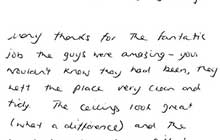 Many thanks for the fantatic
job the guys were amazing - you
wouldn't know they had been, they
left the place very clean and
tidy. The ceilings look great
(what a difference) and the